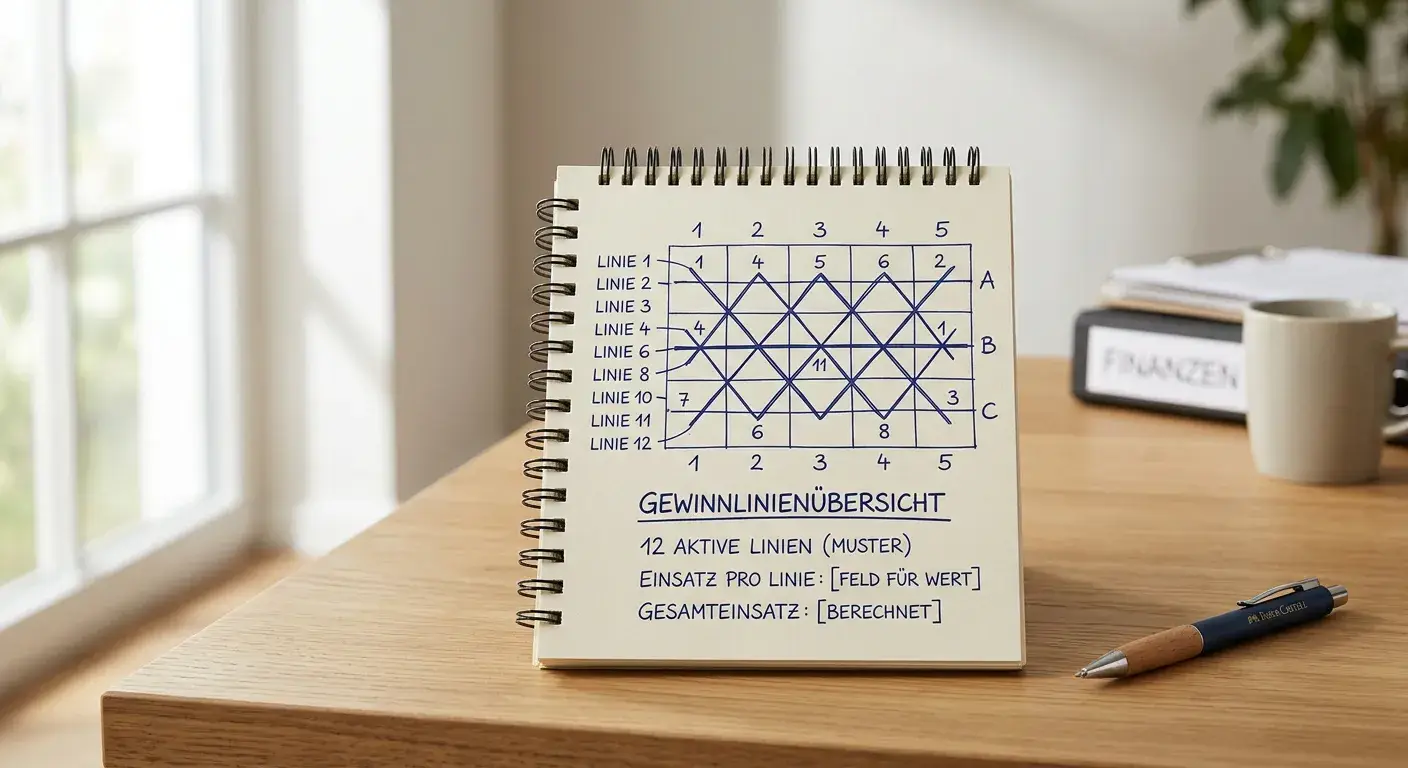 1 2 3 4 5
LINIE 1 1 4 5 6 2
LINIE 2 A
LINIE 3
LINIE 4 4 1
LINIE 6 B
LINIE 8 11
LINIE 10 7 3
LINIE 11 C
LINIE 12 6 8
1 2 3 4 5
GEWINNLINIENÜBERSICHT
12 AKTIVE LINIEN (MUSTER)
EINSATZ PRO LINIE: [FELD FÜR WERT]
GESAMTEINSATZ: [BERECHNET]
FINANZEN